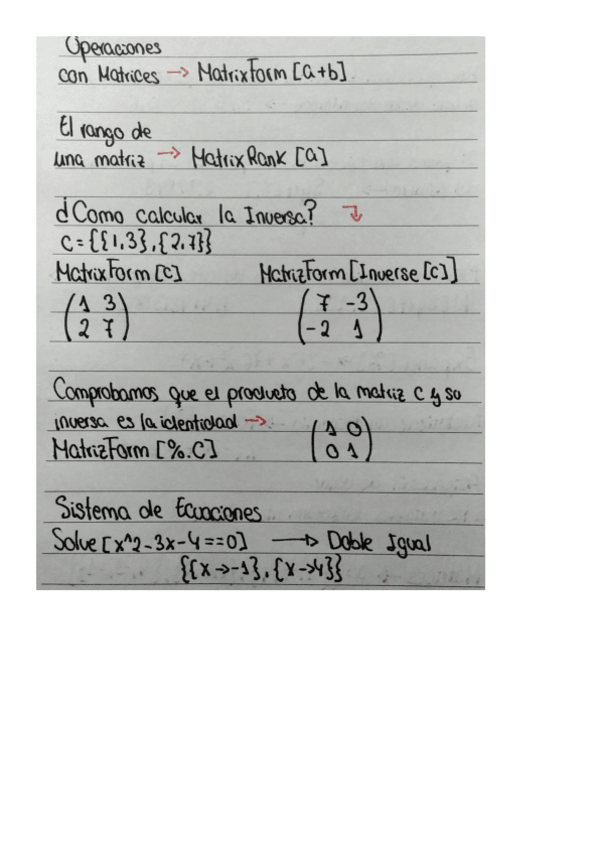 Operaciones
con Matrices → MatrixForm [a+b]
El rango de
una matriz → MatrixRank [a]
¿Como calcular la Inversa? ↴
C = {{1,3},{2,7}}
MatrixForm [c] MatrizForm [Inverse [c]]
(1 3 (7 -3
2 7) -2 1)
Comprobamos que el producto de la matriz C y su
inversa es la identidad → (1 0
MatrizForm [%.C] 0 1)
Sistema de Ecuaciones
Solve [x^2-3x-4==0] → Doble Igual
{{x→-1},{x→4}}